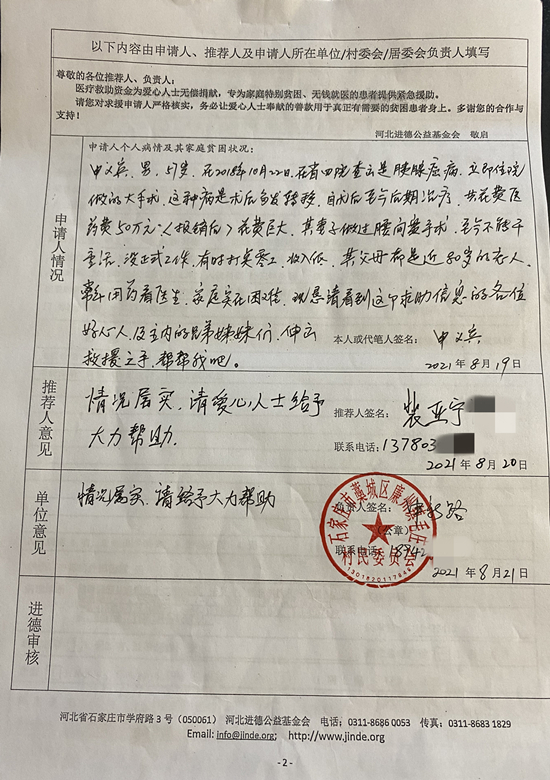 以下内容由申请人、推荐人及申请人所在单位/村委会/居委会负责人填写
尊敬的各位推荐人、负责人:
医疗救助资金为爱心人士无偿捐献,专为家庭特别贫困、无钱就医的患者提供紧急援助。
请您对求援申请人严格核实,务必让爱心人士奉献的善款用于真正有需要的贫困患者身上。多谢您的合作与
支持!
河北进德公益基金会 敬启
申请人情况
申请人个人病情及其家庭贫困状况:
申义兵,男,51岁,在2018年10月22日,在省四院查出是胰腺癌病,立即住院
做的大手术,这种病是术后多发转移,自术后至今后期治疗,共花费医
药费50万元(报销后)花费巨大,其妻子做过腰间盘手术,至今不能干
重活,没正式工作,有时打点零工,收入低,其父母都是近80岁的老人,
常年用药看医生,家庭实在困难,现恳请看到这个求助信息的各位
好心人及主内的兄弟姊妹们,伸出
救援之手,帮帮我吧。
本人或代笔人签名: 申义兵
2021年8月19日
推荐人意见
情况属实,请爱心人士给予
大力帮助.
推荐人签名: 裴亚宁
联系电话:137803
2021年8月20日
单位意见
情况属实,请给予大力帮助
负责人签名:
(公章)
联系电话:
石家庄市藁城区廉州镇毛庄
村民委员会
1301820117849
2021年8月21日
进德审核
河北省石家庄市学府路3号(050061) 河北进德公益基金会 电话:0311-8686 0053 传真:0311-8683 1829
Email: info@jinde.org; http://www.jinde.org
- 2 -